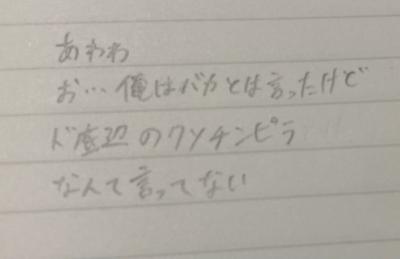 あわわ
お…俺はバカとは言ったけど
ド底辺のクソチンピラ
なんて言ってない